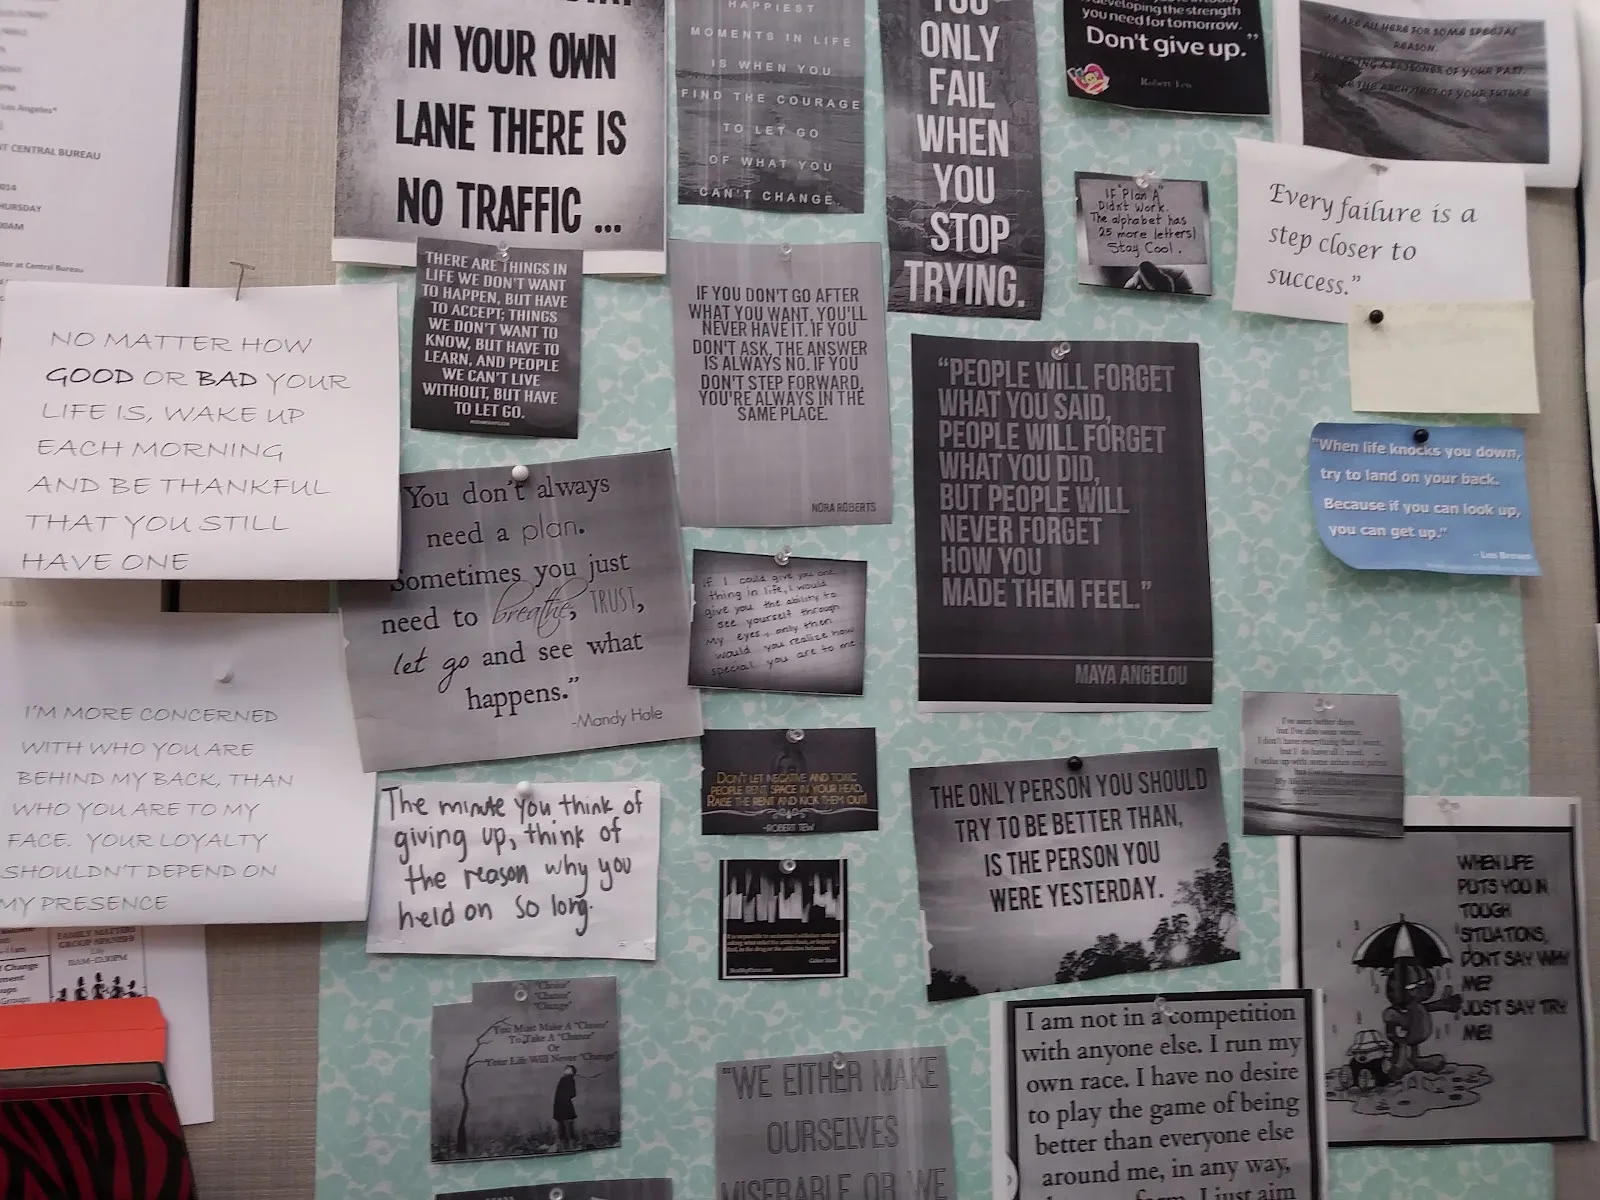 Los Angeles"
CENTRAL BUREAU
2014
THURSDAY
at Central Bureau
IN YOUR OWN
LANE THERE IS
NO TRAFFIC ...
HAPPIEST
MOMENTS IN LIFE
IS WHEN YOU
FIND THE COURAGE
TO LET GO
OF WHAT YOU
CAN'T CHANGE
YOU
ONLY
FAIL
WHEN
YOU
STOP
TRYING.
developing the strength
you need for tomorrow.
Don't give up."
Robert Tew
WE ARE ALL HERE FOR SOME SPECIAL
REASON.
A PRISONER OF YOUR PAST.
THE ARCHITECT OF YOUR FUTURE
IF "Plan A"
Didn't Work.
The alphabet has
25 more letters!
Stay Cool.
Every failure is a
step closer to
success."
THERE ARE THINGS IN
LIFE WE DON'T WANT
TO HAPPEN, BUT HAVE
TO ACCEPT; THINGS
WE DON'T WANT TO
KNOW, BUT HAVE TO
LEARN, AND PEOPLE
WE CAN'T LIVE
WITHOUT, BUT HAVE
TO LET GO.
IF YOU DON'T GO AFTER
WHAT YOU WANT, YOU'LL
NEVER HAVE IT. IF YOU
DON'T ASK, THE ANSWER
IS ALWAYS NO. IF YOU
DON'T STEP FORWARD,
YOU'RE ALWAYS IN THE
SAME PLACE.
NORA ROBERTS
NO MATTER HOW
GOOD OR BAD YOUR
LIFE IS, WAKE UP
EACH MORNING
AND BE THANKFUL
THAT YOU STILL
HAVE ONE
"PEOPLE WILL FORGET
WHAT YOU SAID,
PEOPLE WILL FORGET
WHAT YOU DID,
BUT PEOPLE WILL
NEVER FORGET
HOW YOU
MADE THEM FEEL."
MAYA ANGELOU
"When life knocks you down,
try to land on your back.
Because if you can look up,
you can get up."
-- Les Brown
You don't always
need a plan.
Sometimes you just
need to breathe, TRUST,
let go and see what
happens."
-Mandy Hale
If I could give you one
thing in life, I would
give you the ability to
see yourself through
My eyes, only then
would you realize how
special you are to me
I'M MORE CONCERNED
WITH WHO YOU ARE
BEHIND MY BACK, THAN
WHO YOU ARE TO MY
FACE. YOUR LOYALTY
SHOULDN'T DEPEND ON
MY PRESENCE
DON'T LET NEGATIVE AND TOXIC
PEOPLE RENT SPACE IN YOUR HEAD.
RAISE THE RENT AND KICK THEM OUT!
-ROBERT TEW
I've seen better days,
but I've also seen worse.
I don't have everything that I want,
but I do have all I need.
I woke up with some aches and pains
but I woke up.
THE ONLY PERSON YOU SHOULD
TRY TO BE BETTER THAN,
IS THE PERSON YOU
WERE YESTERDAY.
The minute you think of
giving up, think of
the reason why you
held on so long.
WHEN LIFE
PUTS YOU IN
TOUGH
SITUATIONS,
DON'T SAY WHY
ME?
JUST SAY TRY
ME!
FAMILY MATTERS
GROUP SPANISH
11AM-12:30PM
Change
Groups
"Choice"
"Chance"
"Change"
You Must Make A "Choice"
To Take A "Chance"
Or
Your Life Will Never "Change"
"WE EITHER MAKE
OURSELVES
MISERABLE OR WE
I am not in a competition
with anyone else. I run my
own race. I have no desire
to play the game of being
better than everyone else
around me, in any way,
form. I just aim